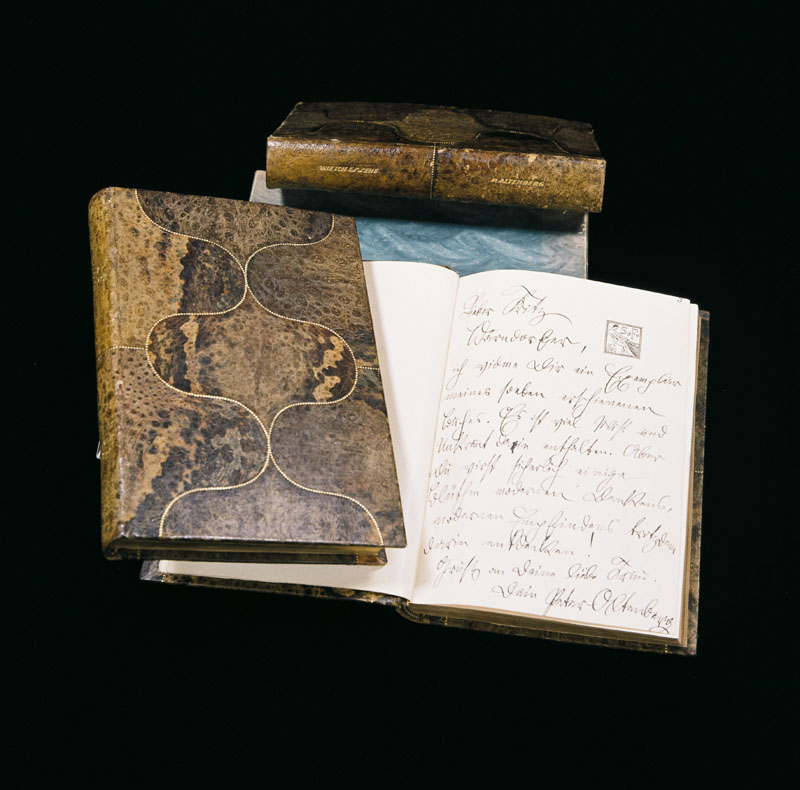 WIE ICH ES SEHE
P. ALTENBERG
Lieber Fritz
Wärndorfer,
ich widme Dir ein Exemplar
meines soeben erschienenen
Buches. Es ist viel Mist und
Unkraut darin enthalten. Aber
Du wirst sicherlich einige
Blüthen modernen Denkens,
modernen Empfindens trotzdem
darin entdecken!
an Deine liebe Frau.
Dein Peter Altenberg